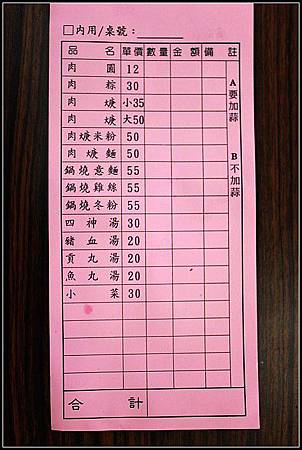 □內用/桌號：
品名 單價 數量 金額 備註
肉圓 12
肉粽 30
肉焿 小35
肉焿 大50
肉焿米粉 50
肉焿麵 50
鍋燒意麵 55
鍋燒雞絲 55
鍋燒冬粉 55
四神湯 30
豬血湯 20
貢丸湯 20
魚丸湯 20
小菜 30
A要加蒜
B不加蒜
合計